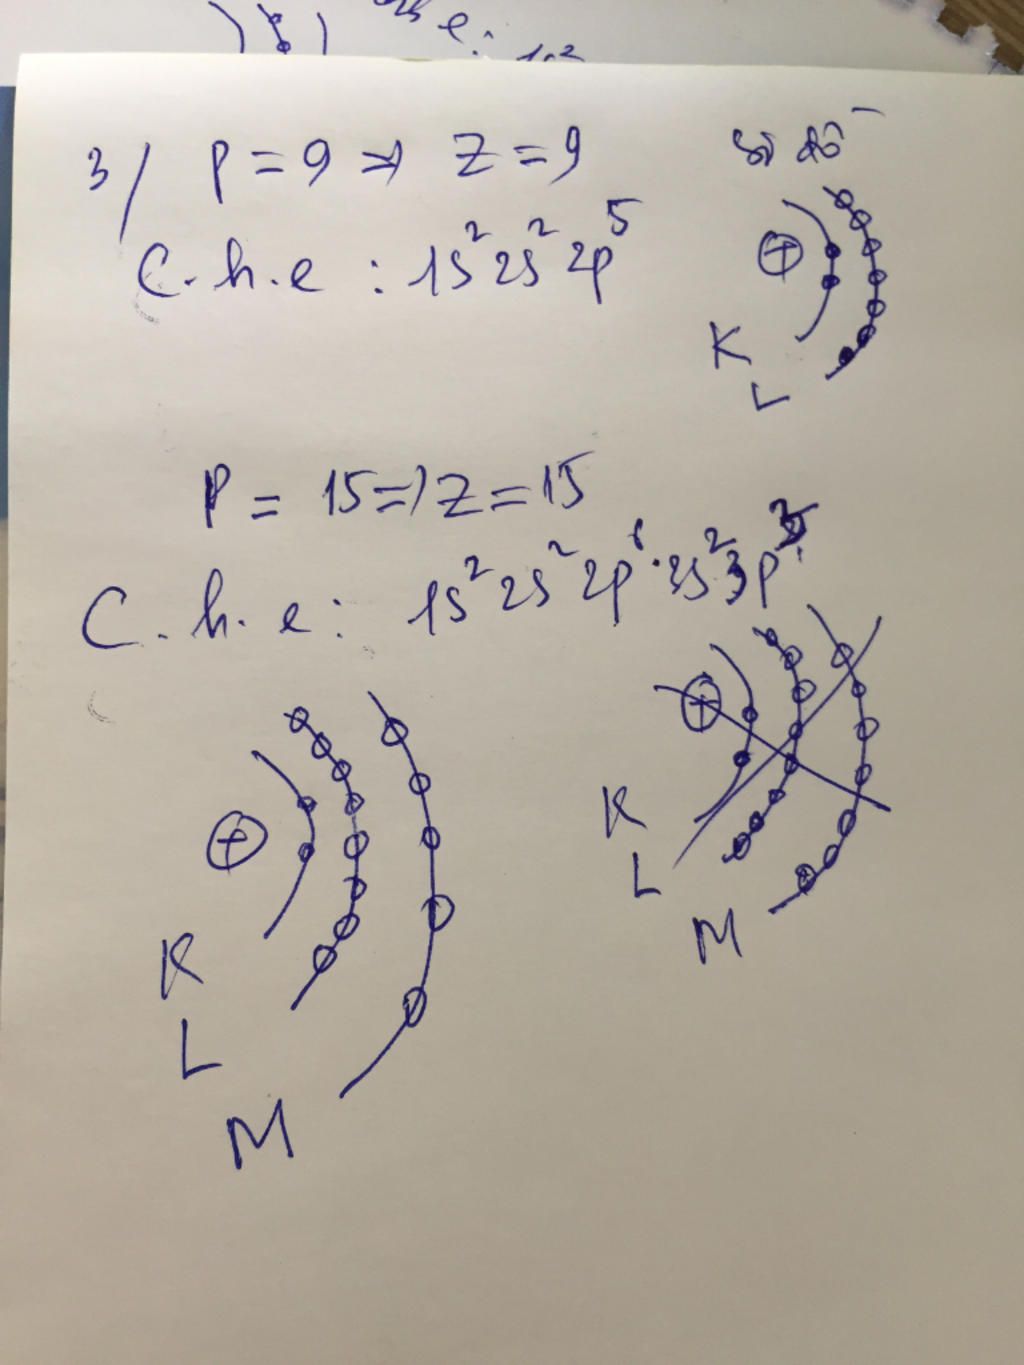 e:
1s²
3/ P = 9 => Z = 9
sơ đồ
C.h.e : 1s² 2s² 2p⁵
K
L
P = 15 => Z = 15
C.h.e : 1s² 2s² 2p⁶ 3s² 3p³
K
L
M
K
L
M